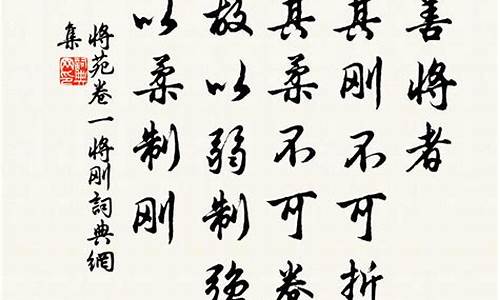 善将者
其刚不可折
其柔不可卷
故以弱制强
以柔制刚
将苑卷一将刚詞典網
集